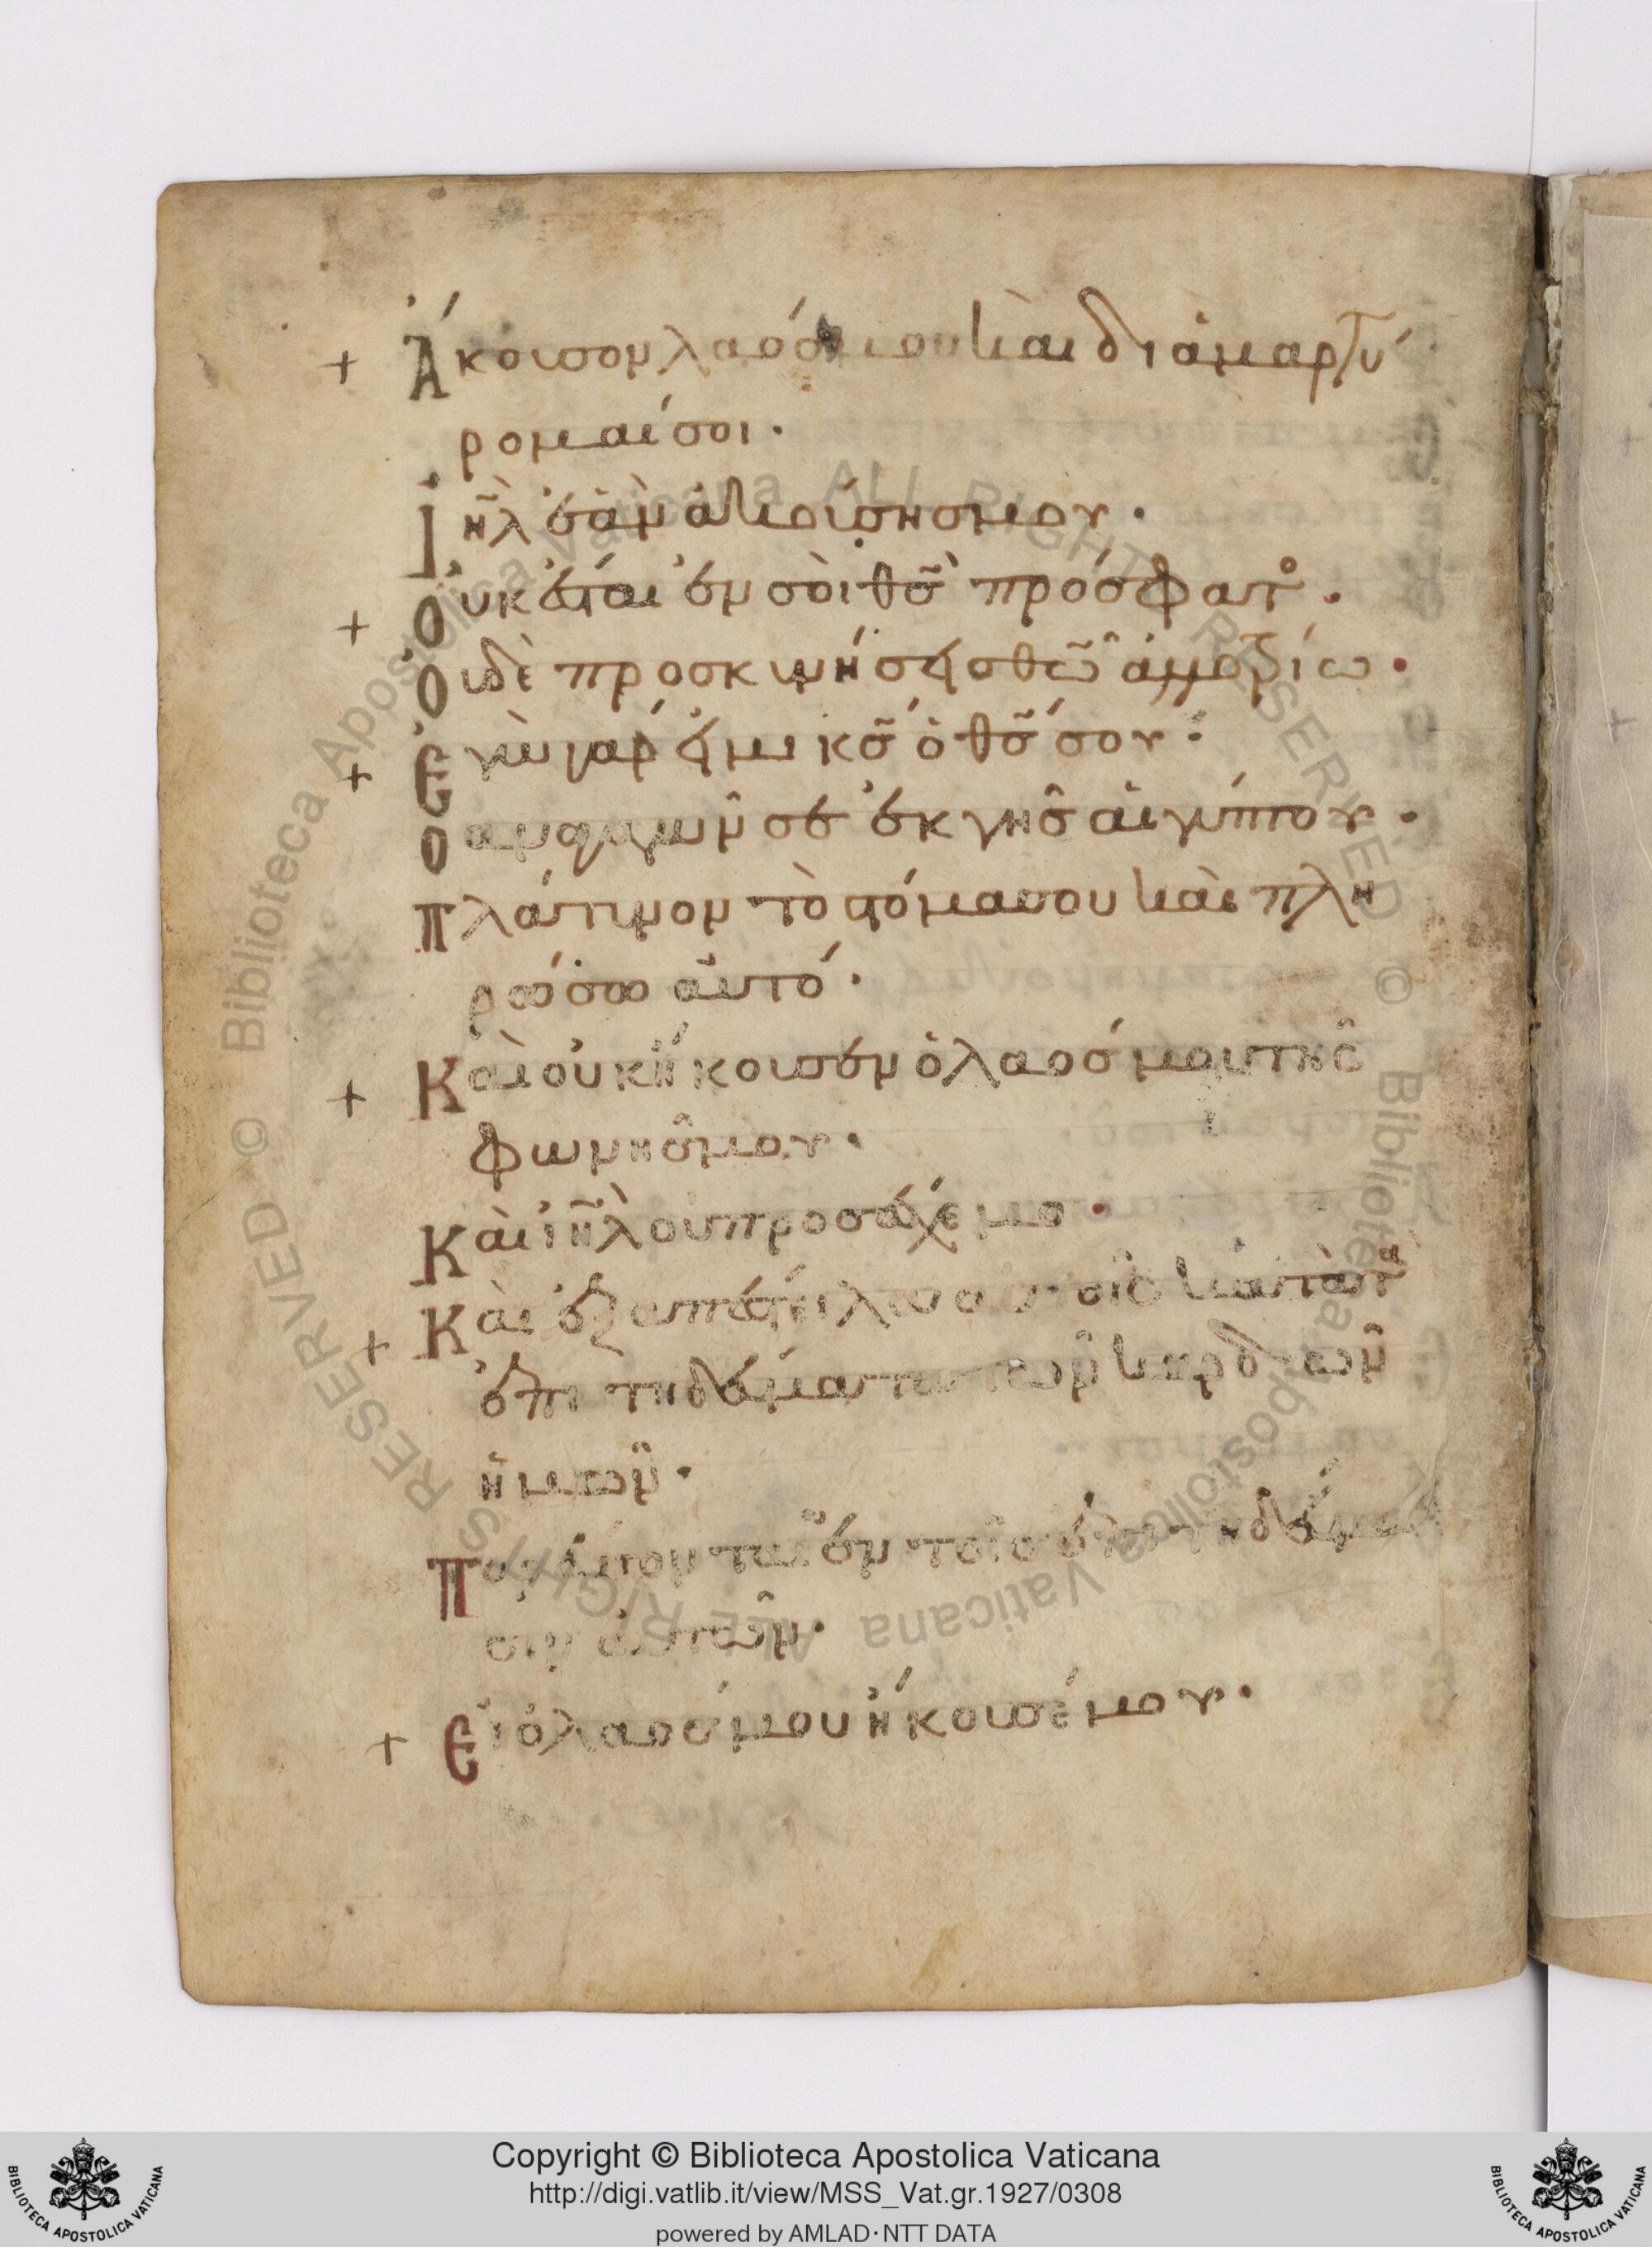 + Ἄκουσον λαός μου καὶ διαμαρτύ
ρομαί σοι·
Ἰη̃λ ἐὰν ἀκούσης μου·
+ Οὐκ ἔσται ἐν σοὶ θσ̃ πρόσφατο·
Οὐδὲ προσκυνήσεις θω̃ ἀλλοτρίω·
+ Ἐγὼ γάρ εἰμι κσ̃ ὁ θσ̃ σου·
Ὁ ἀναγαγών σε ἐκ γῆς αἰγύπτου·
Πλάτυνον τὸ στόμα σου καὶ πλη
ρώσω αὐτό·
+ Καὶ οὐκ ἤκουσεν ὁ λαός μου τῆς
φωνῆς μου·
Καὶ ἰη̃λ οὐ προσέσχέ μοι·
+ Καὶ ἐξαπέστειλα αὐτοὺς κατὰ τὰ
ἐπιτηδεύματα τῶν καρδιῶν
αὐτῶν·
Πορεύσονται ἐν τοῖς ἐπιτηδεύμα
σιν αὐτῶν·
+ Εἰ ὁ λαός μου ἤκουσέ μου·
© Biblioteca Apostolica Vaticana ALL RIGHTS RESERVED © Biblioteca Apostolica Vaticana ALL RIGHTS RESERVED
Copyright © Biblioteca Apostolica Vaticana
http://digi.vatlib.it/view/MSS_Vat.gr.1927/0308
powered by AMLAD·NTT DATA
BIBLIOTECA APOSTOLICA VATICANA
BIBLIOTECA APOSTOLICA VATICANA